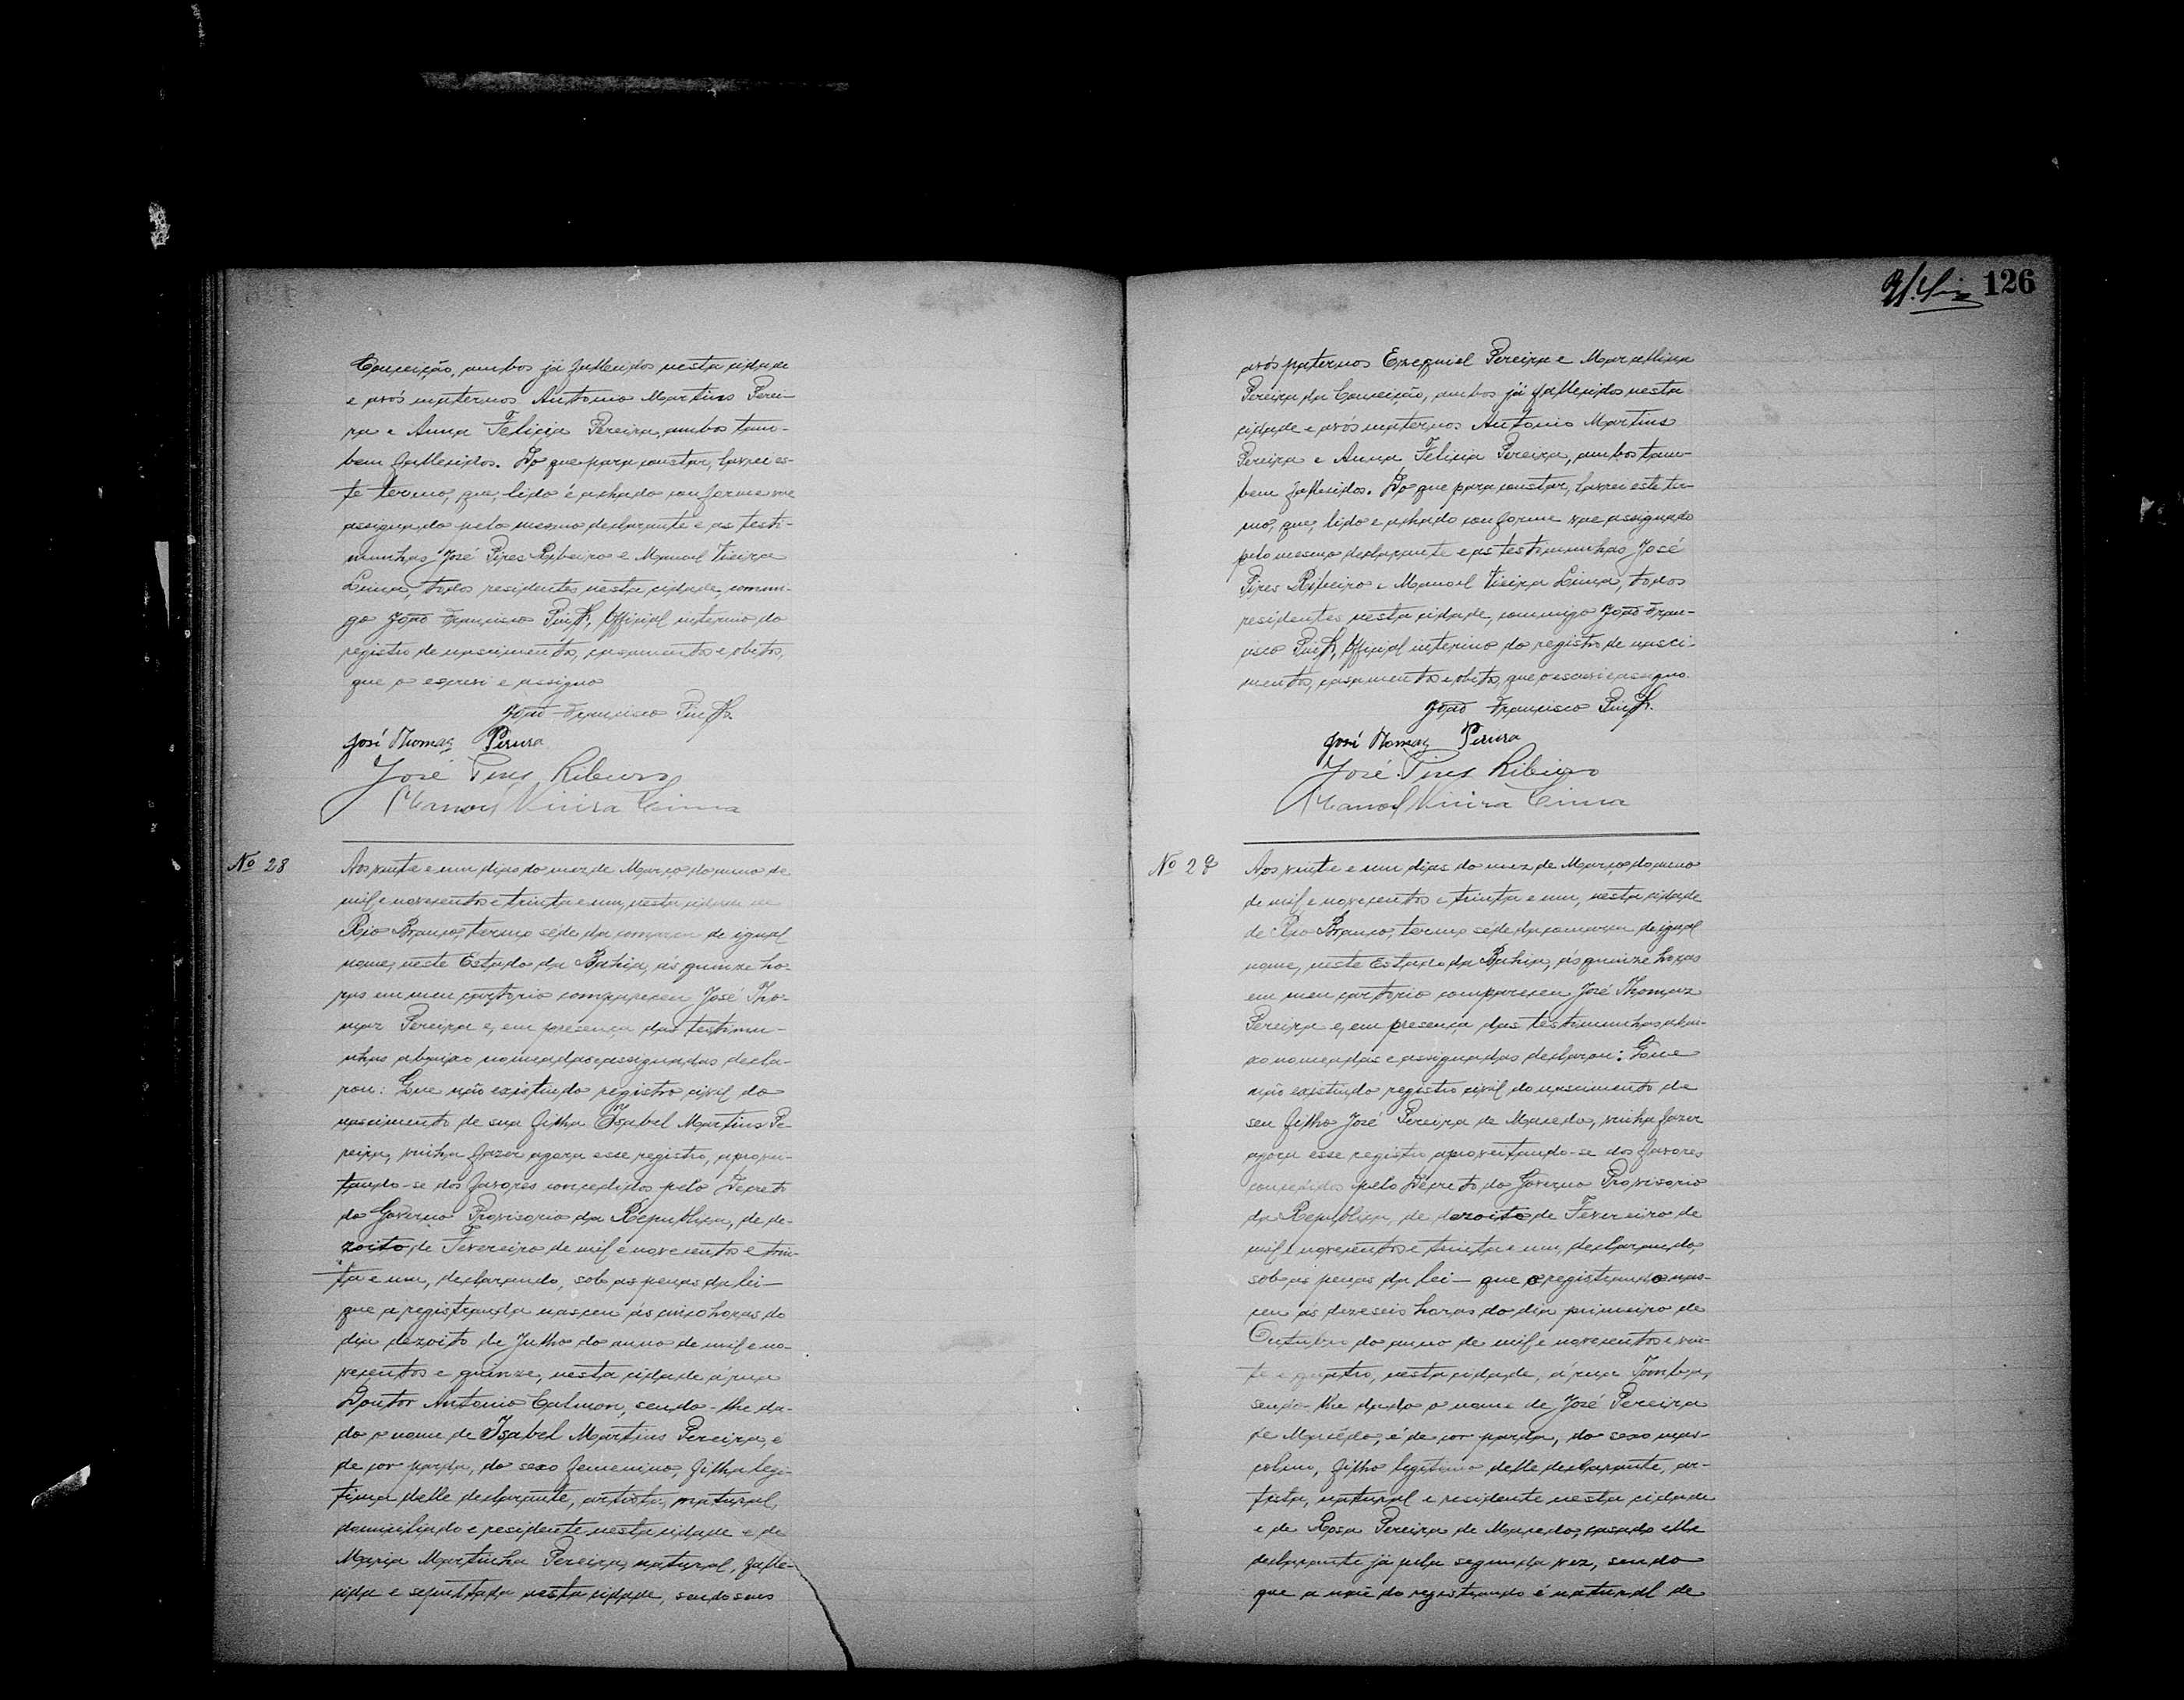 Conceição, ambos já fallecidos nesta cidade
e avós maternos Antonio Martins Perei-
ra e Anna Felicia Pereira, ambos tam-
bem fallecidos. Do que para constar, lavrei es-
te termo, que, lido é achado conforme vae
assignado pelo mesmo declarante e as teste-
munhas José Pires Ribeiro e Manoel Vieira
Lima, todos residentes nesta cidade, commi-
go João Francisco Official interino do
registro de nascimentos, casamentos e obitos,
que o escrevi e assigno
João Francisco
José Thomaz Pereira
José Pires Ribeiro
Manoel Vieira Lima
Nº 28
Aos vinte e um dias do mez de Março do anno de
mil e novecentos e trinta e um, nesta cidade de
Rio Branco, termo séde da comarca de igual
nome, neste Estado da Bahia, ás quinze ho-
ras em meu cartorio compareceu José Tho-
maz Pereira e, em presença das testemu-
nhas abaixo nomeadas e assignadas decla-
rou: Que não existindo registro civil do
nascimento de sua filha Isabel Martins Pe-
reira, vinha fazer agora esse registro, aprovei-
tando-se dos favores concedidos pelo Decreto
do Governo Provisorio da Republica, de de-
zoito de Fevereiro de mil e novecentos e trin-
ta e um, declarando, sob as penas da lei —
que a registranda nasceu ás cinco horas do
dia dezoito de Julho do anno de mil e no-
vecentos e quinze, nesta cidade á rua
Doutor Antonio Calmon, sendo-lhe da-
do o nome de Isabel Martins Pereira, é
de cor parda, do sexo femenino, filha legi-
tima delle declarante, artista, natural,
domiciliado e residente nesta cidade e de
Maria Martinha Pereira, natural, falle-
cida e sepultada nesta cidade, sendo seus
126
avós paternos Ezequiel Pereira e Marcellina
Pereira da Conceição, ambos já fallecidos nesta
cidade e avós maternos Antonio Martins
Pereira e Anna Felicia Pereira, ambos tam-
bem fallecidos. Do que para constar, lavrei este ter-
mo, que, lido e achado conforme vae assignado
pelo mesmo declarante e as testemunhas José
Pires Ribeiro e Manoel Vieira Lima, todos
residentes nesta cidade, commigo João Fran-
cisco Official interino do registro de nasci-
mentos, casamentos e obitos, que o escrevi e assigno.
João Francisco
José Thomaz Pereira
José Pires Ribeiro
Manoel Vieira Lima
Nº 29
Aos vinte e um dias do mez de Março do anno
de mil e novecentos e trinta e um, nesta cidade
de Rio Branco, termo séde da comarca de igual
nome, neste Estado da Bahia, ás quinze horas
em meu cartorio compareceu José Thomaz
Pereira e, em presença das testemunhas abai-
xo nomeadas e assignadas declarou: Que
não existindo registro civil do nascimento de
seu filho José Pereira de Macedo, vinha fazer
agora esse registro aproveitando-se dos favores
concedidos pelo Decreto do Governo Provisorio
da Republica, de dezoito de Fevereiro de
mil e novecentos e trinta e um, declarando,
sob as penas da lei — que o registrando nas-
ceu ás dezeseis horas do dia primeiro de
Outubro do anno de mil e novecentos e vin-
te e quatro, nesta cidade, á rua Tomba,
sendo-lhe dado o nome de José Pereira
de Macedo, é de cor parda, do sexo mas-
culino, filho legitimo delle declarante, ar-
tista, natural e residente nesta cidade
e de Rosa Pereira de Macedo, casado elle
declarante já pela segunda vez, sendo
que a mãe do registrando é natural de